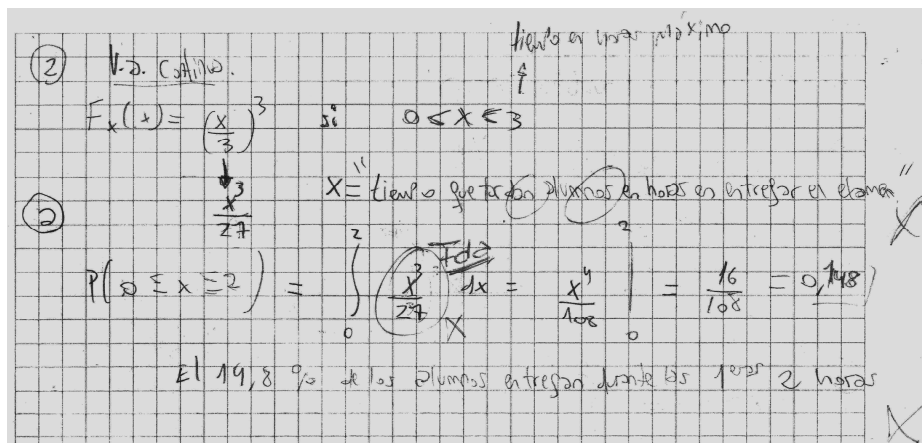 tiempo en horas máximo
② V.a. Continua.
F_x(x) = (x/3)^3 si 0 ≤ x ≤ 3
x^3/27
X = "tiempo que tardan alumnos en horas en entregar el examen"
ⓐ
P(0 ≤ x ≤ 2) = ∫_0^2 x^3/27 dx = x^4/108 |_0^2 = 16/108 = 0,148
Fda
X
El 14,8 % de los alumnos entregan durante las 1eras 2 horas